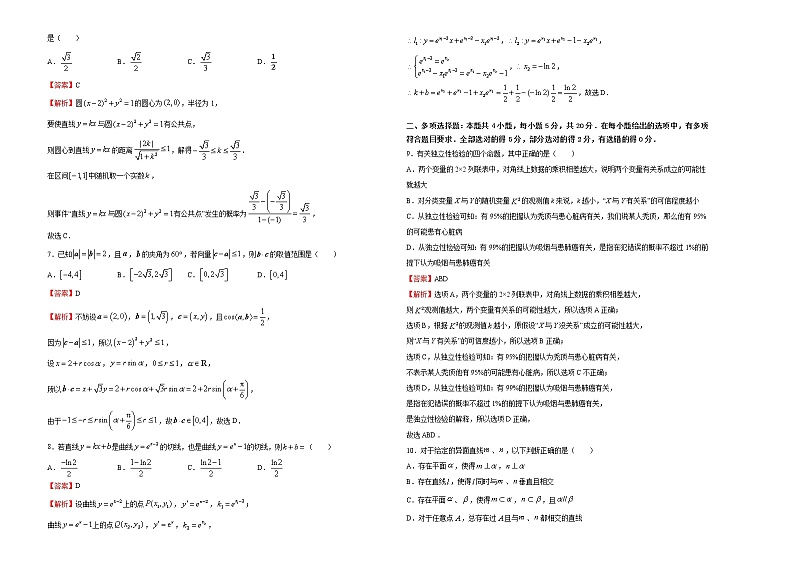 是（　　）
A．√3/2　B．√2/2　C．√3/3　D．1/2
【答案】C
【解析】圆(x−2)²+y²=1的圆心为(2,0)，半径为1，
要使直线y=kx与圆(x−2)²+y²=1有公共点，
则圆心到直线y=kx的距离|2k|/√(1+k²)≤1，解得−√3/3≤k≤√3/3．
在区间[−1,1]中随机取一个实数k，
则事件“直线y=kx与圆(x−2)²+y²=1有公共点”发生的概率为(√3/3−(−√3/3))/(1−(−1))=√3/3，
故选C．
7．已知|a|=|b|=2，且a，b的夹角为60°，若向量|c−a|≤1，则b·c的取值范围是（　　）
A．[−4,4]　B．[−2√3,2√3]　C．[0,2√3]　D．[0,4]
【答案】D
【解析】不妨设a=(2,0)，b=(1,√3)，c=(x,y)，且cos⟨a,b⟩=1/2，
因为|c−a|≤1，所以(x−2)²+y²≤1，
设x=2+rcosα，y=rsinα，0≤r≤1，α∈R，
所以b·c=x+√3y=2+rcosα+√3rsinα=2+2rsin(α+π/6)，
由于−1≤−r≤rsin(α+π/6)≤r≤1，故b·c∈[0,4]，故选D．
8．若直线y=kx+b是曲线y=eˣ⁻²的切线，也是曲线y=eˣ−1的切线，则k+b=（　　）
A．−ln2/2　B．(1−ln2)/2　C．(ln2−1)/2　D．ln2/2
【答案】D
【解析】设曲线y=eˣ⁻²上的点P(x₁,y₁)，y′=eˣ⁻²，k₁=e^(x₁−2)；
曲线y=eˣ−1上的点Q(x₂,y₂)，y′=eˣ，k₂=e^(x₂)，
∴l₁:y=e^(x₁−2)x+e^(x₁−2)−x₁e^(x₁−2)，∴l₂:y=e^(x₂)x+e^(x₂)−1−x₂e^(x₂)，
∴{e^(x₁−2)=e^(x₂)
e^(x₁−2)−x₁e^(x₁−2)=e^(x₂)−x₂e^(x₂)−1，∴x₂=−ln2，
∴k+b=e^(x₂)+e^(x₂)−1+x₂e^(x₂)=1/2+1/2−(−ln2)1/2=ln2/2，故选D．
二、多项选择题：本题共4小题，每小题5分，共20分．在每小题给出的选项中，有多项
符合题目要求．全部选对的得5分，部分选对的得2分，有选错的得0分．
9．有关独立性检验的四个命题，其中正确的是（　　）
A．两个变量的2×2列联表中，对角线上数据的乘积相差越大，说明两个变量有关系成立的可能性
就越大
B．对分类变量X与Y的随机变量K²的观测值k来说，k越小，“X与Y有关系”的可信程度越小
C．从独立性检验可知：有95%的把握认为秃顶与患心脏病有关，我们说某人秃顶，那么他有95%
的可能患有心脏病
D．从独立性检验可知：有99%的把握认为吸烟与患肺癌有关，是指在犯错误的概率不超过1%的前
提下认为吸烟与患肺癌有关
【答案】ABD
【解析】选项A，两个变量的2×2列联表中，对角线上数据的乘积相差越大，
则K²观测值越大，两个变量有关系的可能性越大，所以选项A正确；
选项B，根据K²的观测值k越小，原假设“X与Y没关系”成立的可能性越大，
则“X与Y有关系”的可信度越小，所以选项B正确；
选项C，从独立性检验可知：有95%的把握认为秃顶与患心脏病有关，
不表示某人秃顶他有95%的可能患有心脏病，所以选项C不正确；
选项D，从独立性检验可知：有99%的把握认为吸烟与患肺癌有关，
是指在犯错误的概率不超过1%的前提下认为吸烟与患肺癌有关，
是独立性检验的解释，所以选项D正确，
故选ABD．
10．对于给定的异面直线m、n，以下判断正确的是（　　）
A．存在平面α，使得m⊥α，n⊥α
B．存在直线l，使得l同时与m、n垂直且相交
C．存在平面α、β，使得m⊂α，n⊂β，且α//β
D．对于任意点A，总存在过A且与m、n都相交的直线